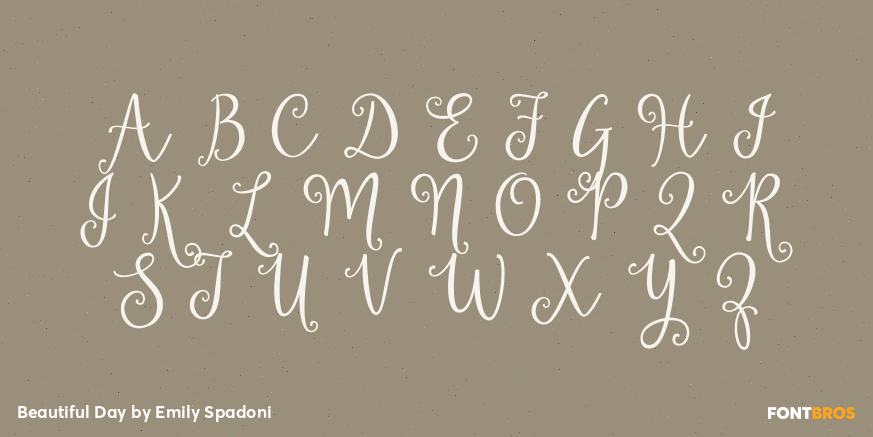 A B C D E F G H I
J K L M N O P Q R
S T U V W X Y Z
Beautiful Day by Emily Spadoni
FONTBROS